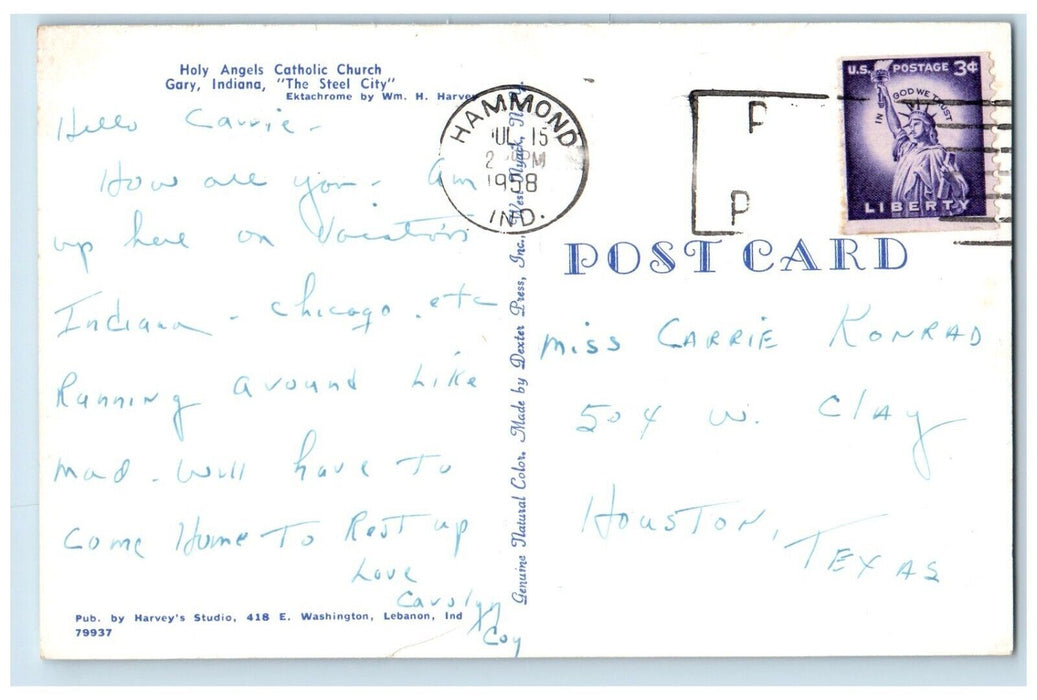 Holy Angels Catholic Church
Gary, Indiana, "The Steel City"
Ektachrome by Wm. H. Harvey
Hello Carrie -
How are you - Am
up here on Vacation
Indiana - Chicago. etc
Running around Like
mad. Will have To
Come Home To Rest up
Love
Carolyn
Coy
Pub. by Harvey's Studio, 418 E. Washington, Lebanon, Ind
79937
Genuine Natural Color. Made by Dexter Press, Inc., West Nyack, N.Y.
HAMMOND
JUL 15
2 PM
1958
IND.
P
P
U.S. POSTAGE 3¢
IN GOD WE TRUST
LIBERTY
POST CARD
Miss CARRIE KONRAD
504 W. Clay
HOUSTON,
TEXAS